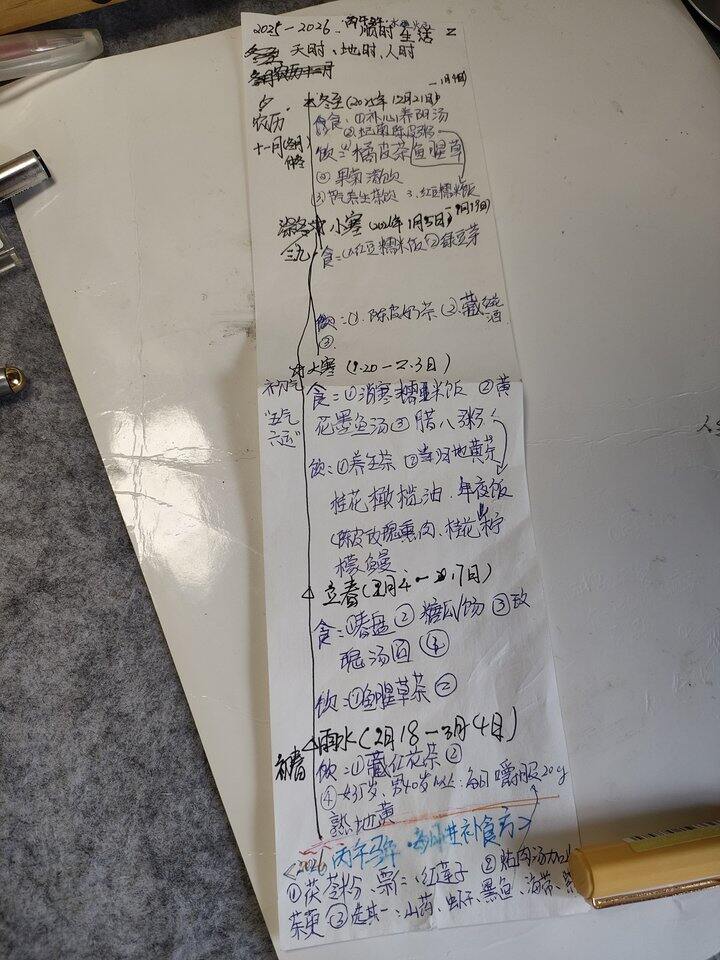 2025-2026. 顺时生活 2
天时、地时、人时
-1月4日)
冬至(2025年12月21日)
农历
十一月
食:①补心养阴汤
②杞菊陈皮粥
饮:①橘皮茶 鱼腥草
② 果菊清饮
③节气养生茶饮 3.红豆糯米饭
小寒(2026年1月5日-1月19日)
三九
食:①红豆糯米饭②绿豆芽
饮:①.陈皮奶茶②.藏红花
酒
③.
大寒(1.20-2.3日)
补气
"五气
六运"
食:①消寒糯米饭 ②黄
花墨鱼汤③腊八粥
饮:①养生茶 ②当归地黄茶
桂花橄榄油.年夜饭
(陈皮玫瑰熏肉、桂花柠
檬鳗
立春(2月4-2.17日)
食:①春盘②糖瓜饧③玫
瑰汤圆④
饮:①鱼腥草茶②
初春
雨水(2月18-3月4日)
饮:①藏红花茶②
④女35岁、男40岁以上:每日嚼服20g
熟地黄
<2026丙午马年·每月进补食方>
①茯苓粉、栗仁、红莲子 ②炖肉汤加
茱萸③选其一:山药、虾子、黑鱼、海带、